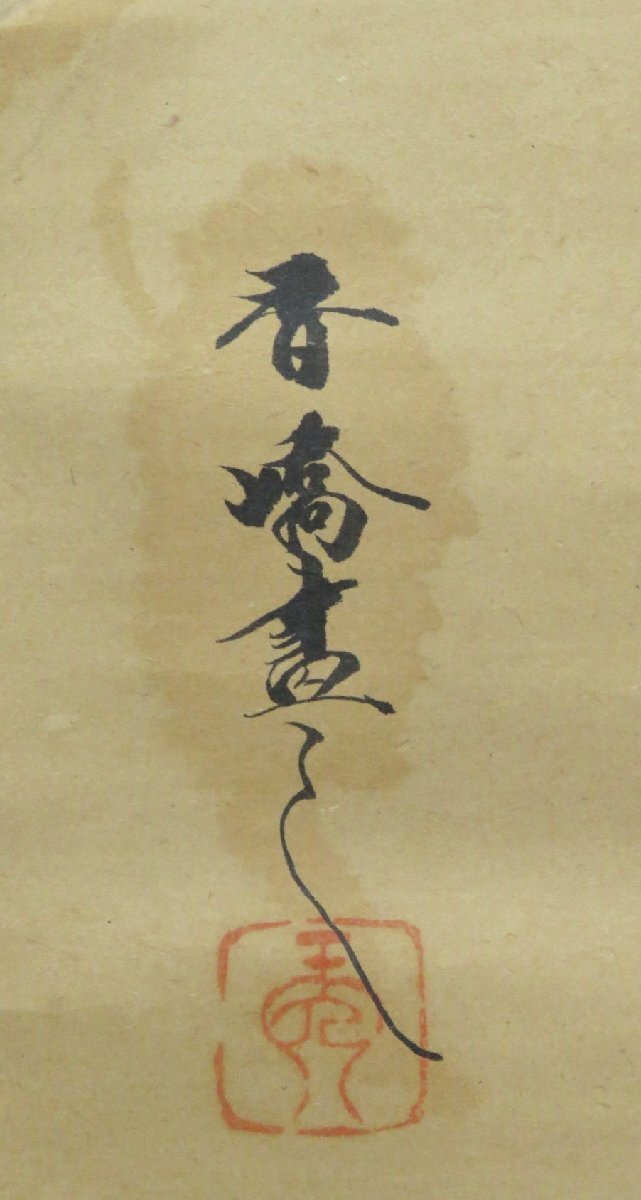 香嶠畫之